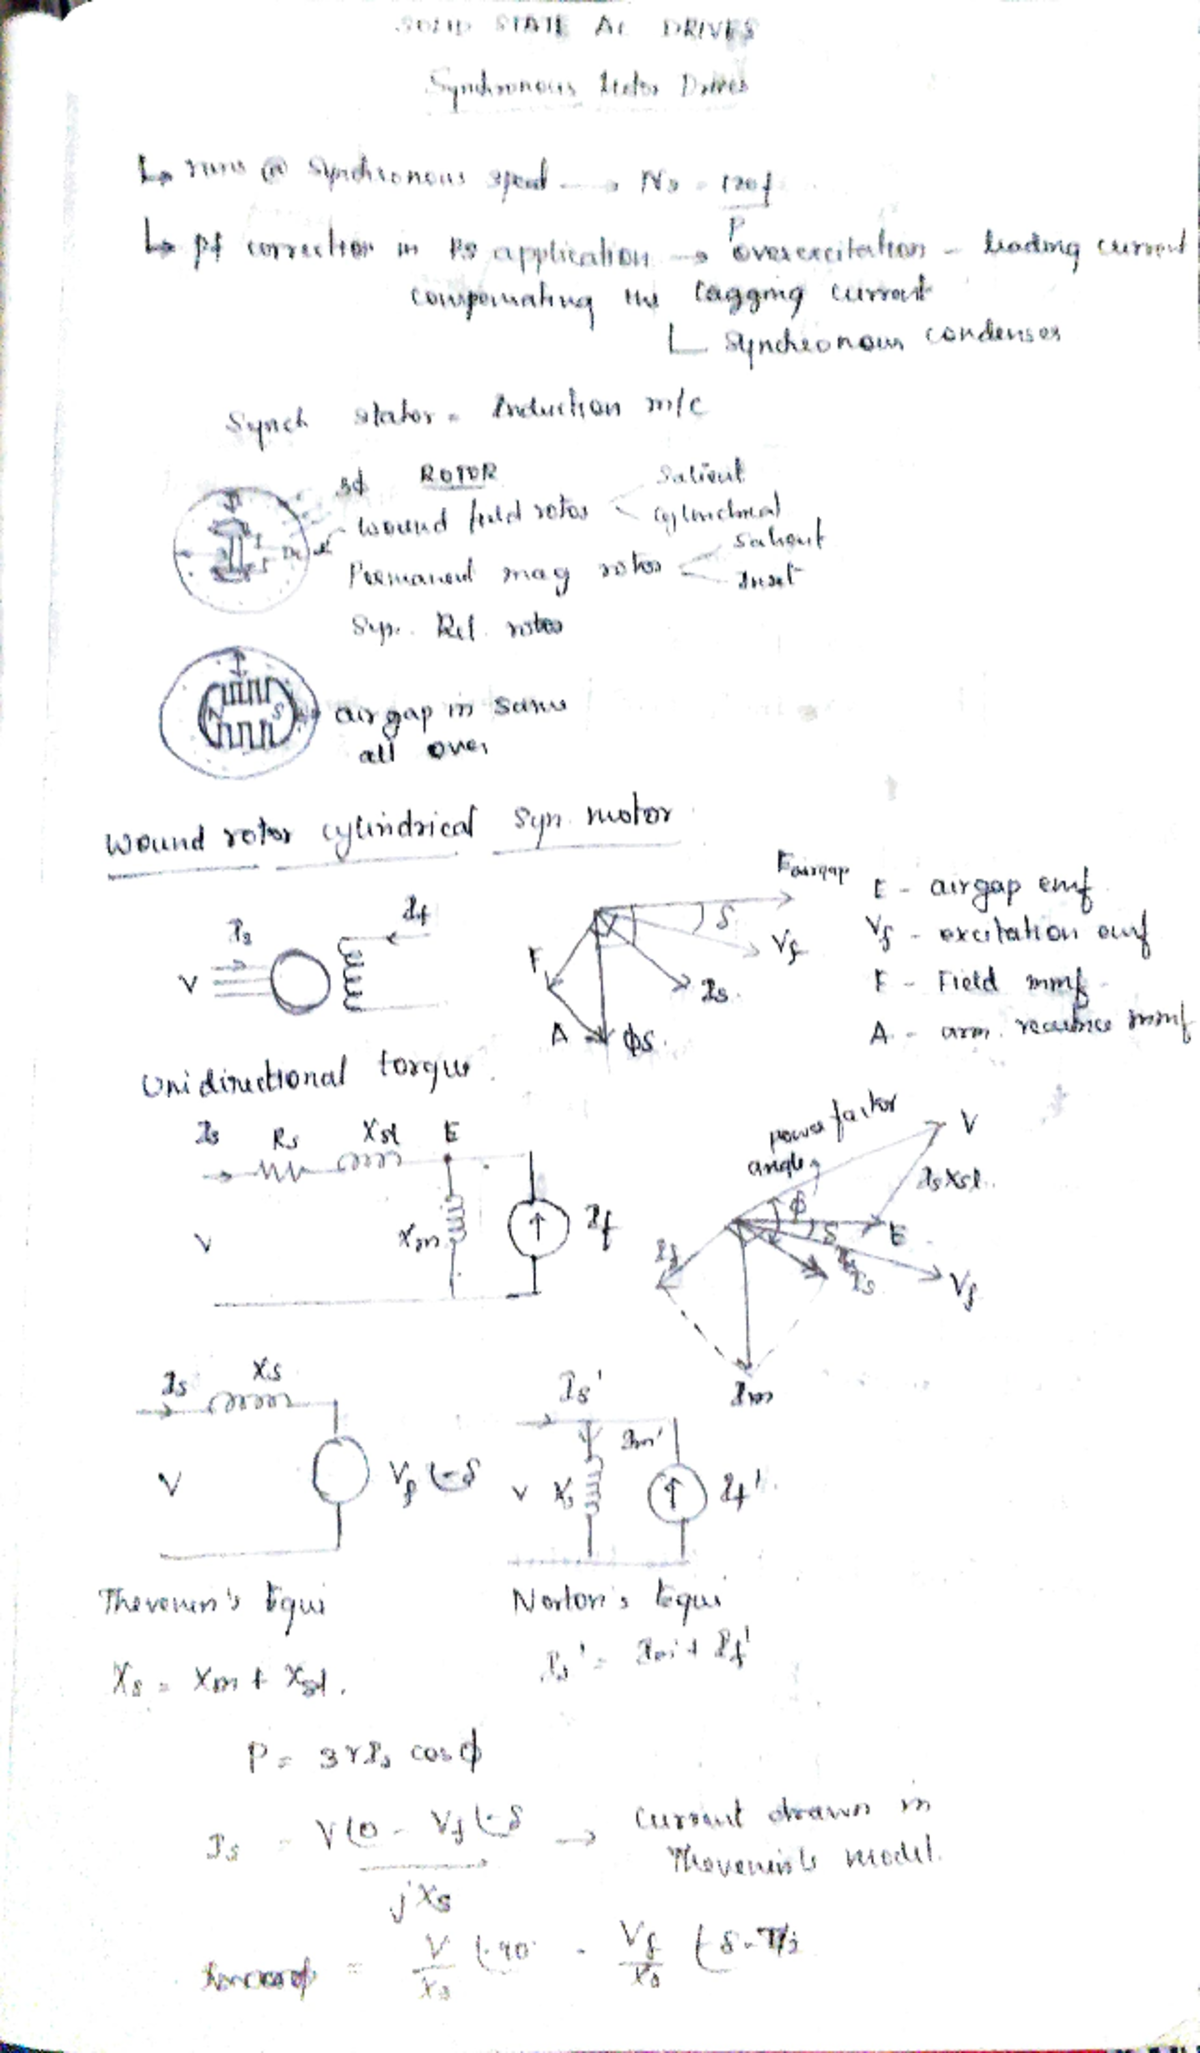 SOLID STATE AC DRIVES
Synchronous Motor Drives
↳ runs @ synchronous speed → Ns = 120f/P
↳ pf correction in Ps application → overexcitation - leading current
compensating the lagging current
└ synchronous condenser
Synch stator = Induction m/c
3ϕ ROTOR
Wound field rotor < Salient
cylindrical
Permanent mag rotor < Salient
Inset
Syn. Rel. rotor
N S
air gap is same
all over
Wound rotor cylindrical syn. motor
Is If V
Eairgap δ Vf Is F A ϕs
E - airgap emf
Vf - excitation emf
F - Field mmf
A - arm. reactance mmf
Unidirectional torque
Is Rs Xsl E
V Xm If
power factor angle
V IsXsl ϕ δ E If Is Vf Im
Is Xs V Vf∠-δ
Is' Im' V Xs If'
Thevenin's Equi
Norton's Equi
Xs = Xm + Xsl.
Is' = Im' + If'
P = 3VIs cosϕ
Is = V∠0 - Vf∠-δ / jXs → Current drawn in
Thevenin's model.
= V/Xs ∠-90° - Vf/Xs